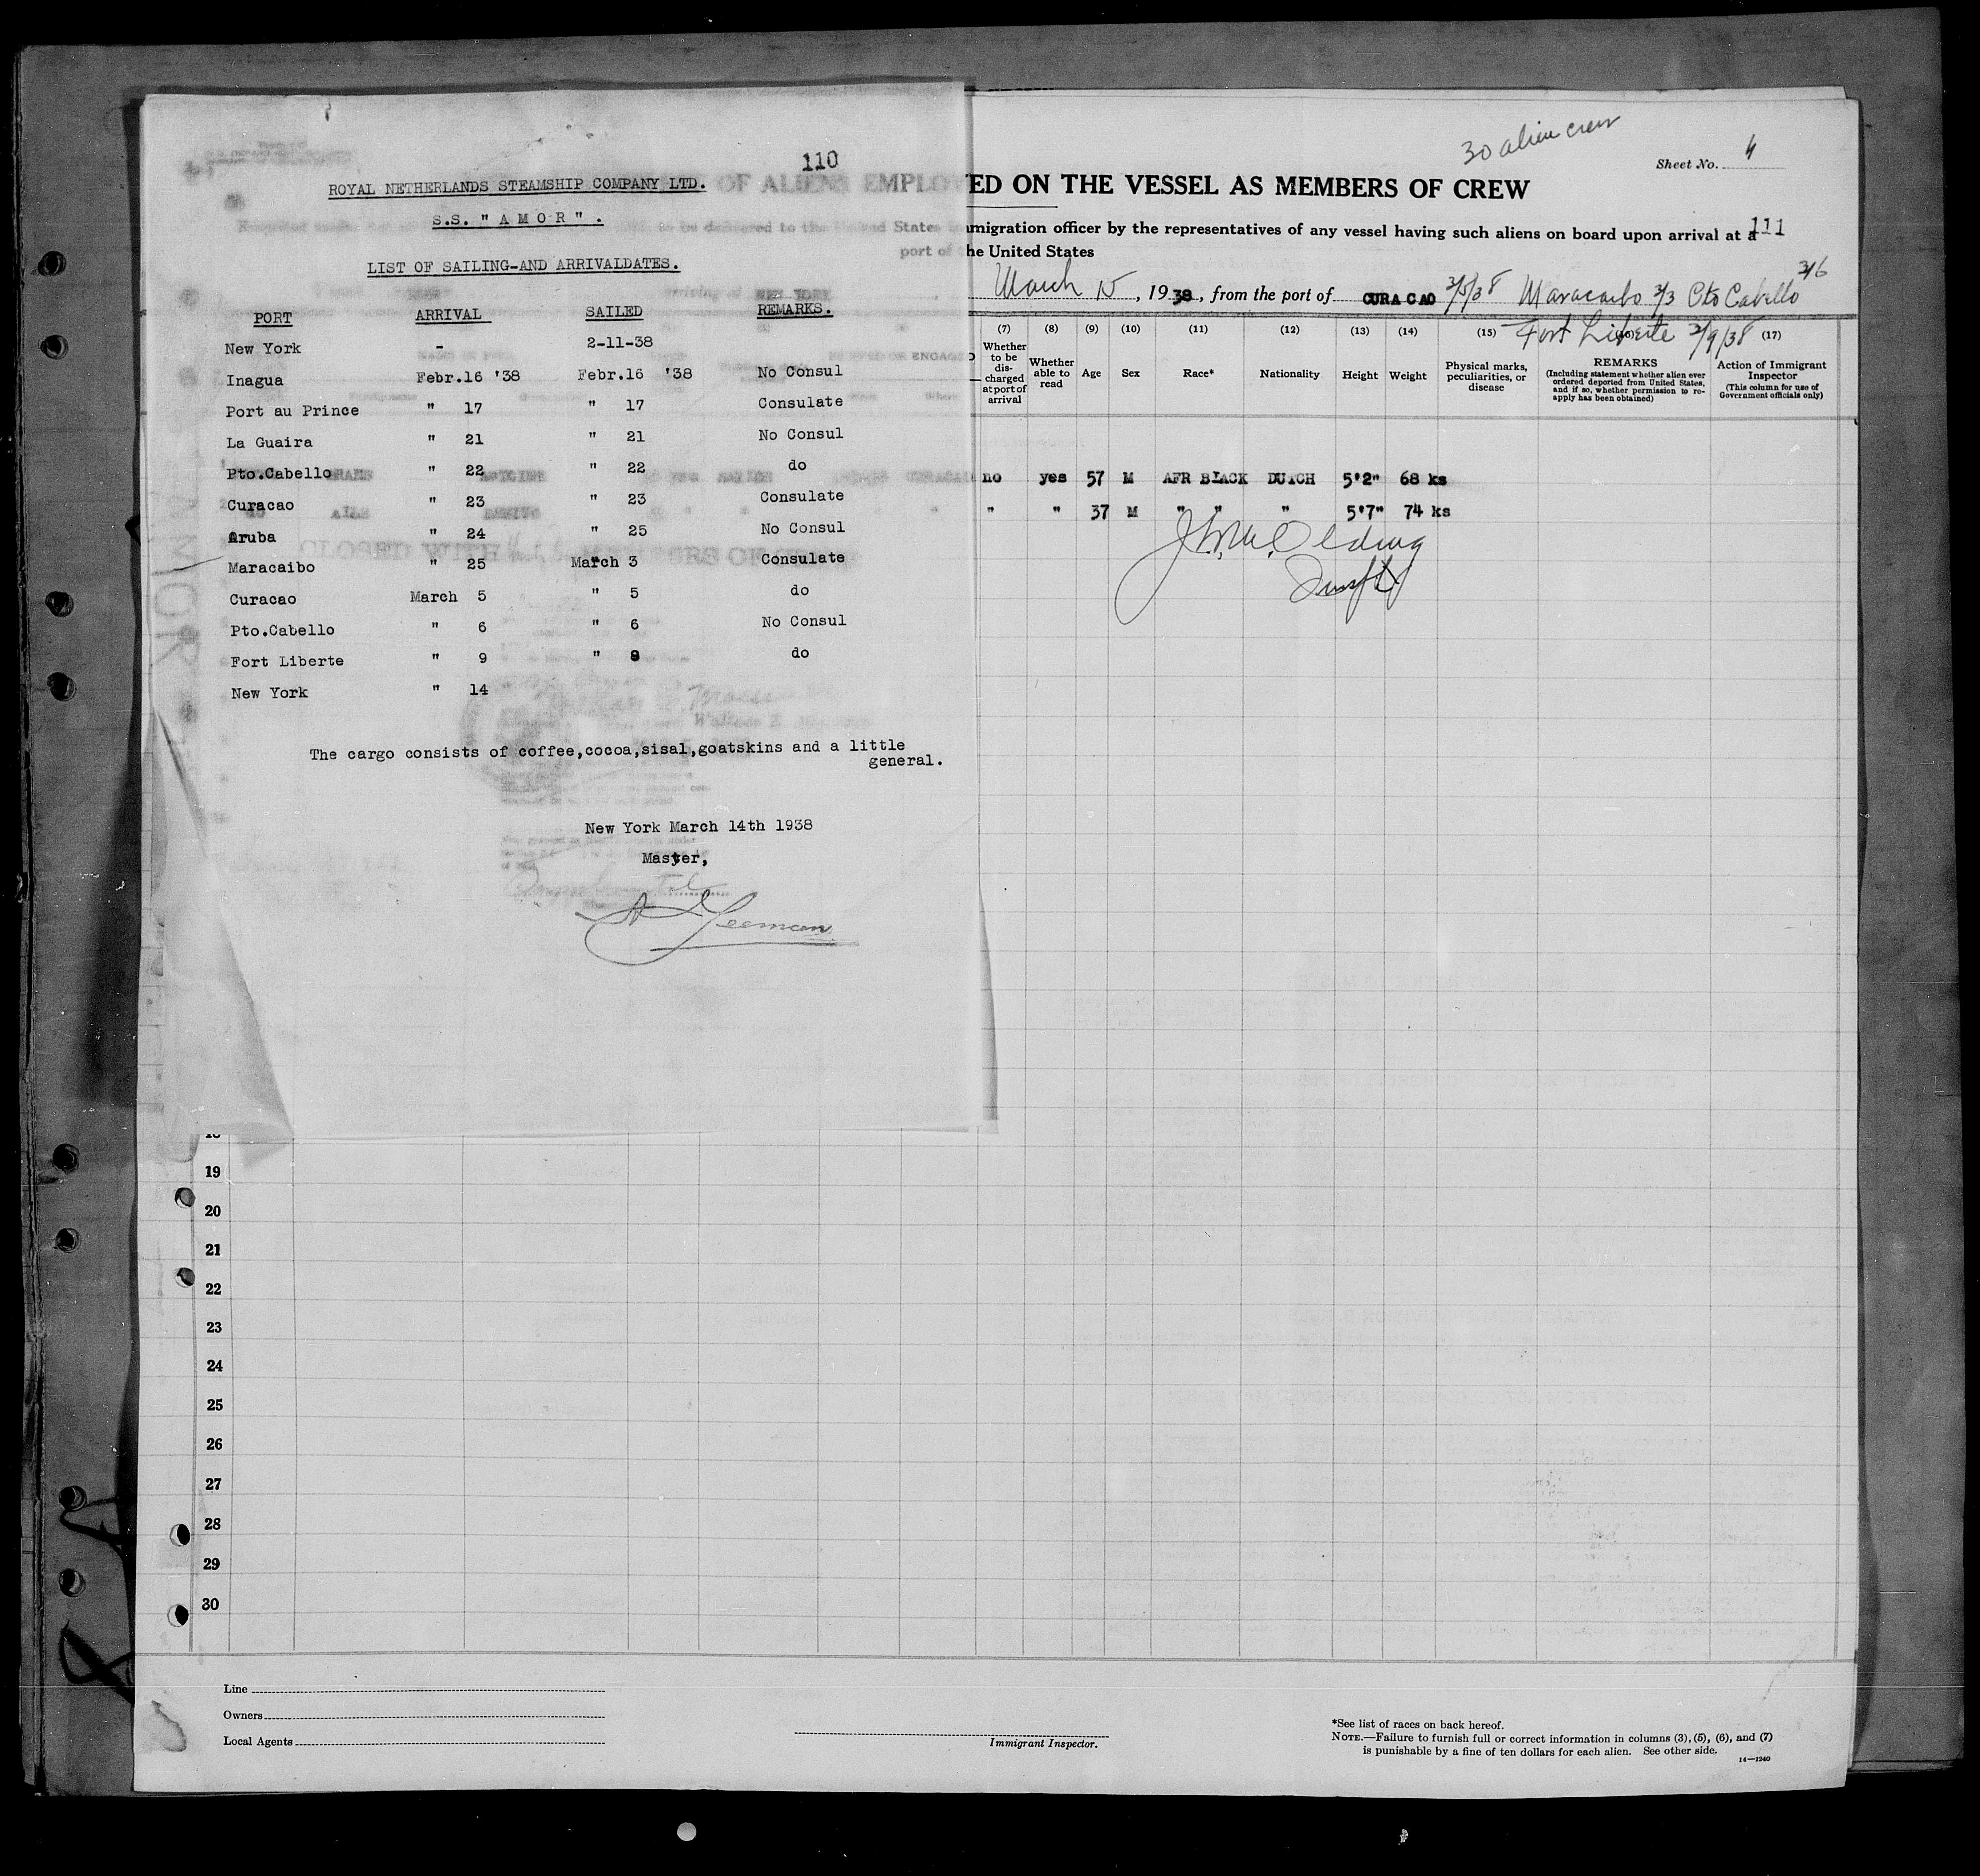 110
ROYAL NETHERLANDS STEAMSHIP COMPANY LTD.
S.S. " A M O R " .
LIST OF SAILING-AND ARRIVALDATES.
PORT ARRIVAL SAILED REMARKS.
New York - 2-11-38
Inagua Febr.16 '38 Febr.16 '38 No Consul
Port au Prince " 17 " 17 Consulate
La Guaira " 21 " 21 No Consul
Pto.Cabello " 22 " 22 do
Curacao " 23 " 23 Consulate
Aruba " 24 " 25 No Consul
Maracaibo " 25 March 3 Consulate
Curacao March 5 " 5 do
Pto.Cabello " 6 " 6 No Consul
Fort Liberte " 9 " 9 do
New York " 14
The cargo consists of coffee,cocoa,sisal,goatskins and a little
general.
New York March 14th 1938
Master,
30 alien crew
Sheet No. 4
OF ALIENS EMPLOYED ON THE VESSEL AS MEMBERS OF CREW
111
to be delivered to the United States immigration officer by the representatives of any vessel having such aliens on board upon arrival at a
port of the United States
arriving at NEW YORK March 15, 1938, from the port of CURACAO 3/5/38 Maracaibo 3/3 Pto Cabello 3/6
Fort Liberte 3/9/38
(7) (8) (9) (10) (11) (12) (13) (14) (15) (16) (17)
Whether to be discharged at port of arrival
Whether able to read
Age
Sex
Race*
Nationality
Height
Weight
Physical marks, peculiarities, or disease
REMARKS
(Including statement whether alien ever ordered deported from United States, and if so, whether permission to reapply has been obtained)
Action of Immigrant Inspector
(This column for use of Government officials only)
no yes 57 M AFR BLACK DUTCH 5'2" 68 ks
" " 37 M " " " 5'7" 74 ks
CLOSED WITH MEMBERS OF CREW
19
20
21
22
23
24
25
26
27
28
29
30
Line
Owners
Local Agents
Immigrant Inspector.
*See list of races on back hereof.
NOTE.—Failure to furnish full or correct information in columns (3), (5), (6), and (7)
is punishable by a fine of ten dollars for each alien. See other side.
14—1240